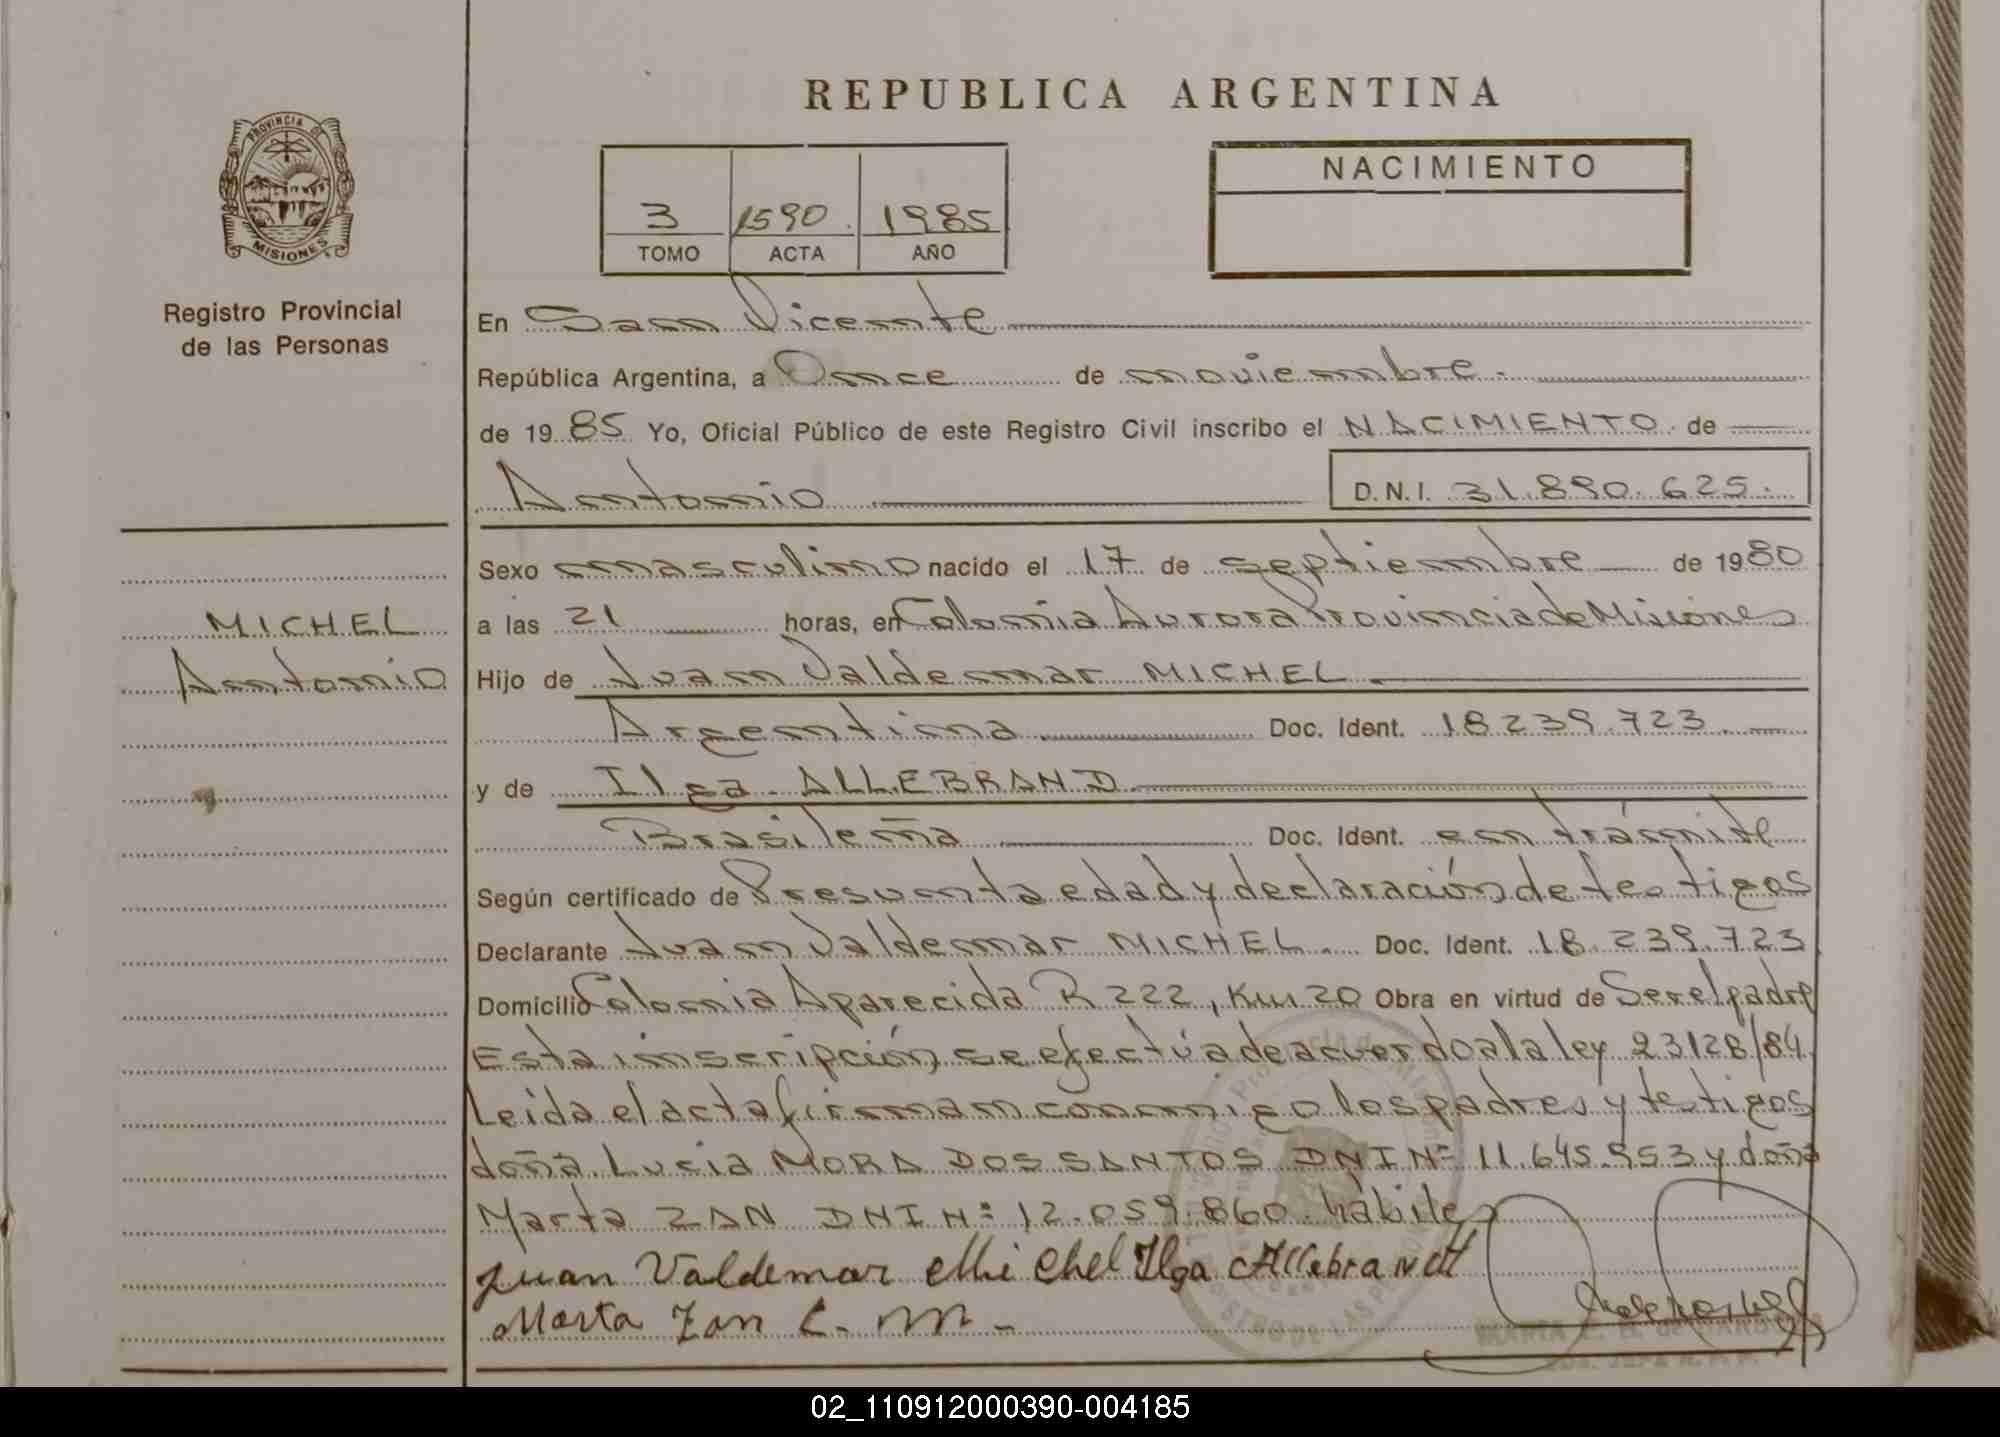 REPUBLICA ARGENTINA
PROVINCIA DE
MISIONES
Registro Provincial
de las Personas
NACIMIENTO
3 1590. 1985
TOMO ACTA AÑO
En San Vicente
República Argentina, a Once de noviembre.
de 1985 Yo, Oficial Público de este Registro Civil inscribo el NACIMIENTO de
Antonio D.N.I. 31.890.625.
MICHEL
Antonio
Sexo masculino nacido el 17 de septiembre de 1980
a las 21 horas, en Colonia Aurora Provincia de Misiones
Hijo de Juan Valdemar MICHEL
Argentina Doc. Ident. 18239.723
y de Ilga ALLEBRAND
Brasileña Doc. Ident. en trámite
Según certificado de Presunta edad y declaración de testigos
Declarante Juan Valdemar MICHEL. Doc. Ident. 18.239.723
Domicilio Colonia Aparecida R 222, Km 20 Obra en virtud de Ser el padre
Esta inscripción se efectúa de acuerdo a la ley 23128/84.
Leída el acta firman conmigo los padres y testigos
doña Lucia MORA DOS SANTOS DNI Nº 11.645.953 y doña
Marta ZAN DNI Nº 12.059.860. hábiles
Juan Valdemar Michel Ilga Allebrandt
Marta Zan L. m.
02_110912000390-004185